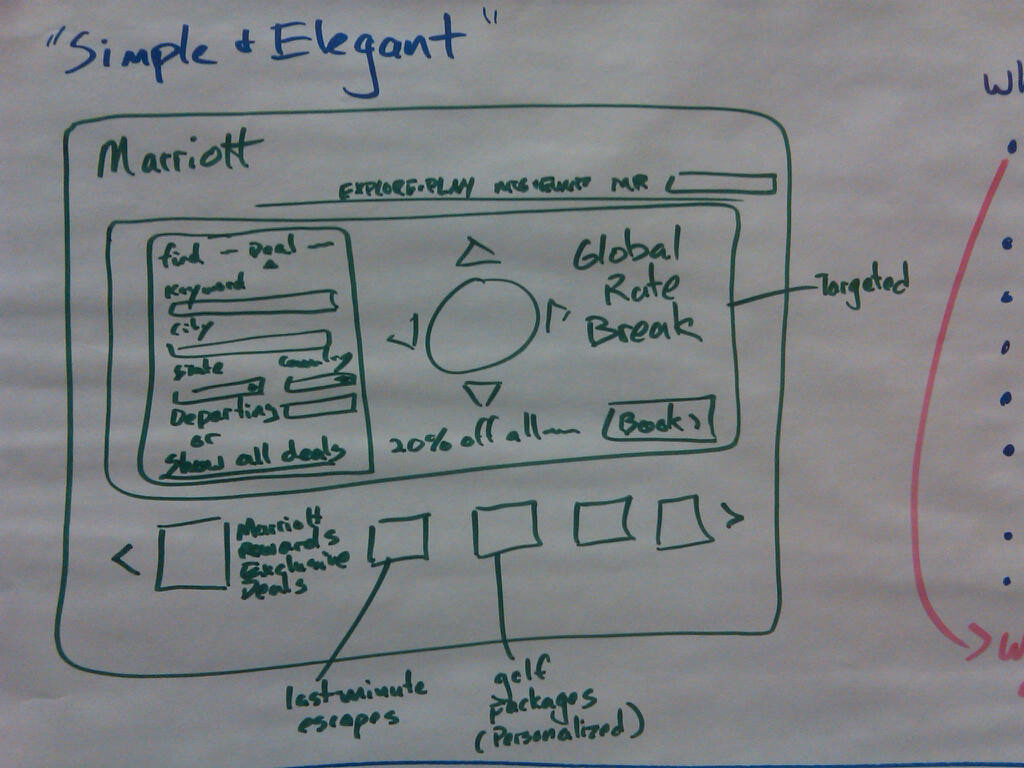 "Simple & Elegant"
Marriott
EXPLORE+PLAY MTG+EVENT MR
find — Deal —
Keyword
City
State Country
Departing
or
Show all deals
Global
Rate
Break
20% off all
Book >
Targeted
<
Marriott
Rewards
Exclusive
Deals
>
last minute
escapes
golf
packages
(Personalized)